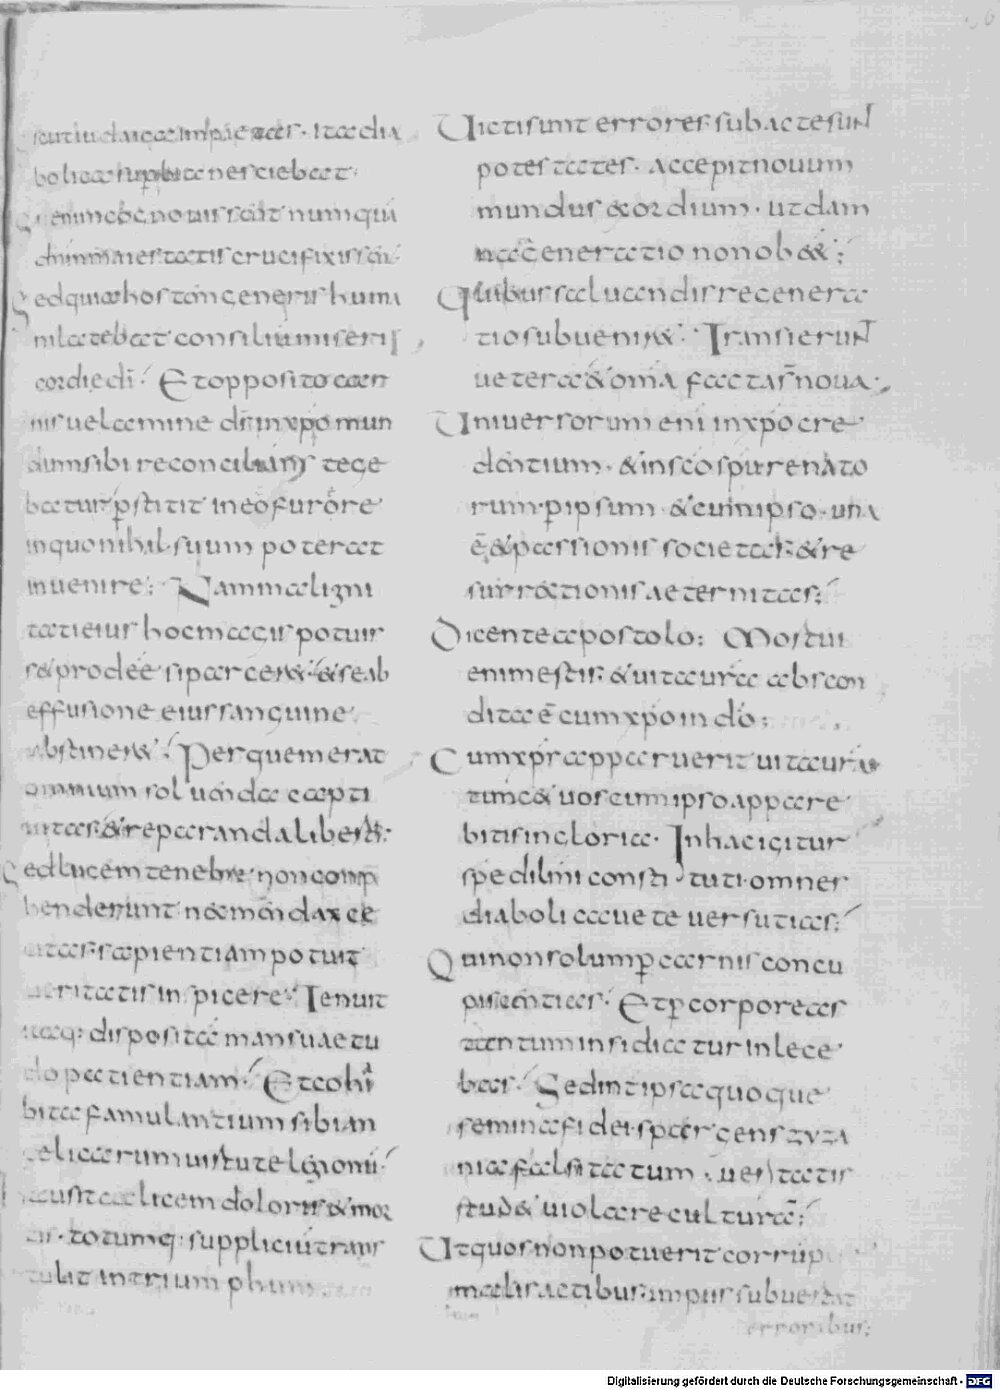 sicut iudaicae impietas · ita dia
bolicae superbiae nesciebat ·
Si enim cognouissent numqua
dn̄m maiestatis crucifixissent ·
Sed quia hostem generis huma
ni latebat consilium miseri
cordiae dī · Et opposito car
nis uelamine dm̄ in xp̄o mun
dum sibi reconcilians tege
batur p̄stitit in eo furōre
in quo nihil suum poterat
inuenire; Nam maligni
tatieius hoc magis potuis
s& prodeē si parcer& · & se ab
effusione eius sanguine
abstiner& · Per quem erat
omnium soluenda capti
uitas · & reparanda libertas:
Sed lucem tenebrae non comp̄
henderunt nec mendax ce
citas sapientiam potuit
ueritatis inspicere; Tenuit
itaq: dispositam mansuaetu
do patientiam · Et cohi
bita famulantium sibi an
gelicarum uirtute legionū ·
hausit calicem doloris & mor
tis · totumq: supplicium trans
tulit in triumphum
Uicti sunt errores subacte suN
potestates · accepit nouum
mundus exordium · ut dam
nata generatio non ob&;
Quibus saluandis regenera
tio subuenir& · Transierunt
uetera & omīa facta sn̄ noua ·
Uniuersorum enī in xp̄o cre
dentium · & in sc̄o spū renato
rum · p̄ ipsum · & cum ipso · una
ē & passionis societas · & re
surrectionis aeternitas;
Dicente apostolo: Mortui
enim estis · & uita ura abscon
dita ē cum xp̄o in dō;
Cum xp̄s apparuerit uita ura
tunc & uos cum ipso appare
bitis in gloria · In hac igitur
spe dil̄mi consti tuti omnes
diaboli cauete uersutias;
Qui non solum p̄ carnis concu
piscentias · Et p̄ corporeas
tantum insidiatur inlece
bas · Sed int ipsa quoque
semina fidei spargens zyza
nia falsitatum · ueritatis
stud& uiolare culturā;
Ut quos non potuerit corrup
malis actibus impiis subuertat
erroribus;
Digitalisierung gefördert durch die Deutsche Forschungsgemeinschaft - DFG